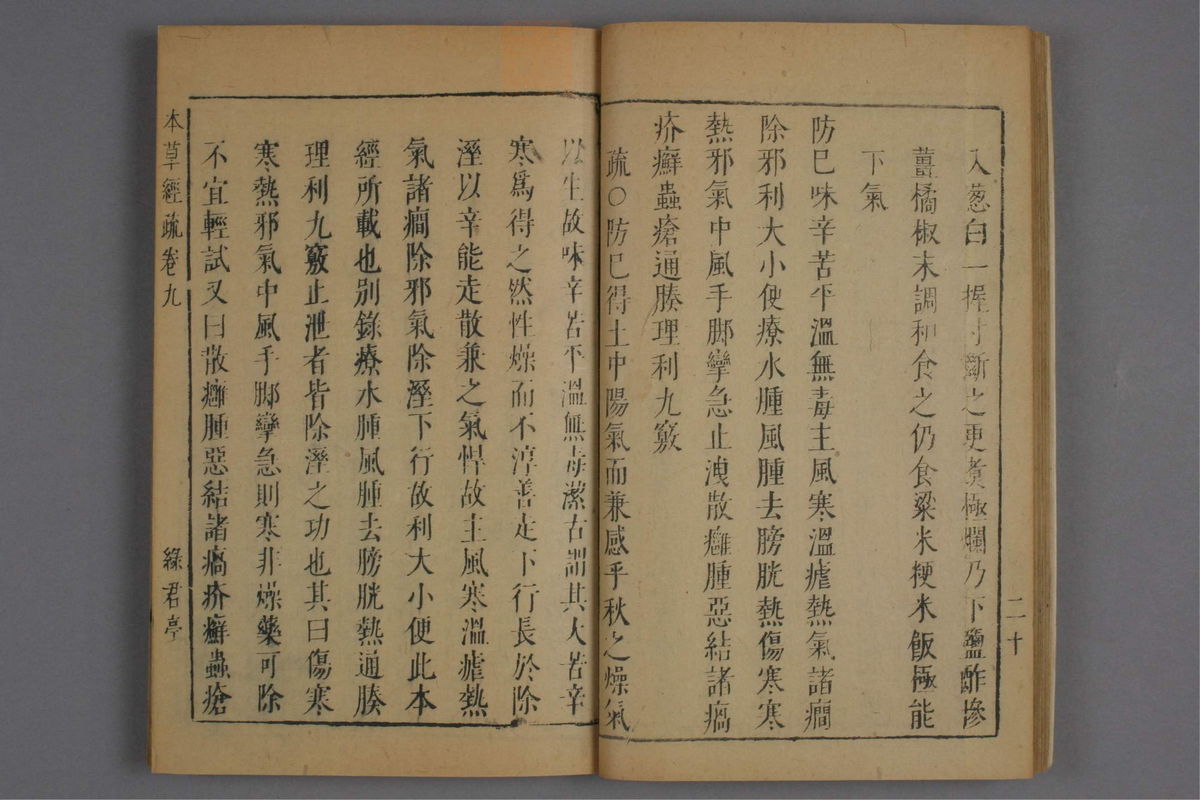 入葱白一握寸斷之更煑極爛乃下鹽酢摻
薑橘椒末調和食之仍食粱米粳米飯極能
下氣
防巳味辛苦平溫無毒主風寒溫瘧熱氣諸癎
除邪利大小便療水腫風腫去膀胱熱傷寒寒
熱邪氣中風手脚攣急止洩散癰腫惡結諸瘑
疥癬蟲瘡通腠理利九竅
疏○防巳得土中陽氣而兼感乎秋之燥氣
二十
以生故味辛苦平溫無毒潔古謂其大苦辛
寒爲得之然性燥而不淳善走下行長於除
溼以辛能走散兼之氣悍故主風寒溫瘧熱
氣諸癎除邪氣除溼下行故利大小便此本
經所載也别錄療水腫風腫去膀胱熱通腠
理利九竅止泄者皆除溼之功也其曰傷寒
寒熱邪氣中風手脚攣急則寒非燥藥可除
不宜輕試又曰散癰腫惡結諸瘑疥癬蟲瘡
本草經疏卷九
綠君亭